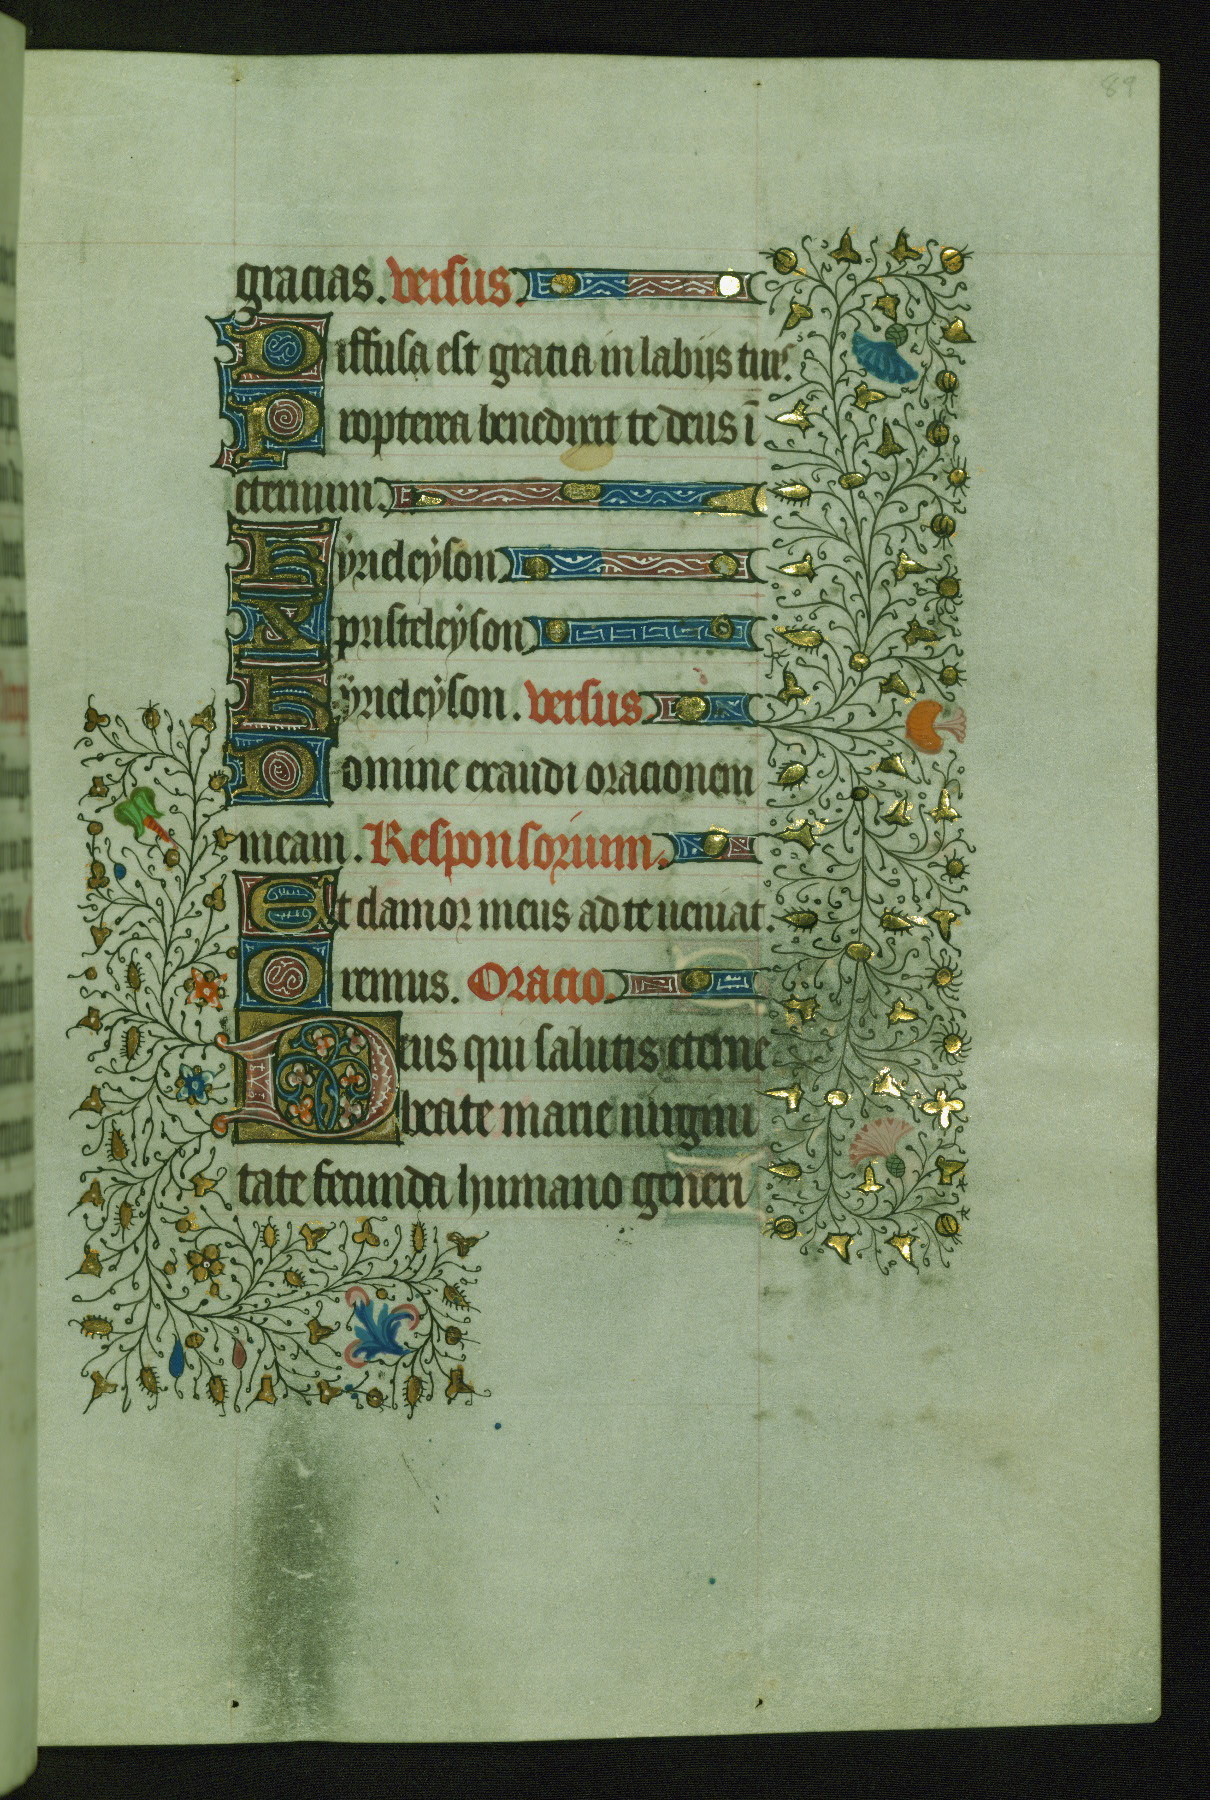 89
gracias. versus.
Diffusa est gracia in labijs tuis.
Propterea benedixit te deus ī
eternum.
Kyrieleÿson
Xpristeleÿson
Kÿrieleÿson. versus.
Domine exaudi oracionem
meam. Responsorium.
Et clamor meus ad te ueniat.
Oremus. Oracio.
Deus qui salutis eterne
beate marie uirgini
tate fecunda humano generi